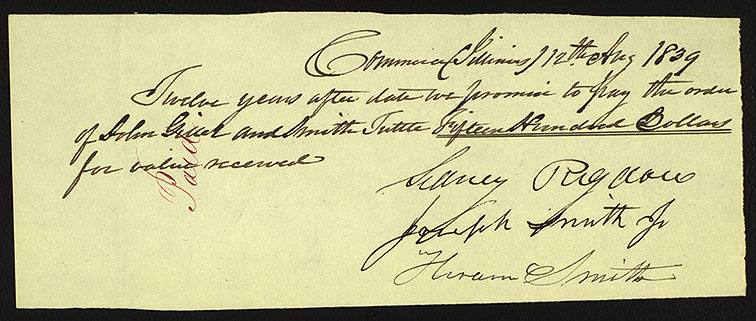 Commerce (Illinois) 12th Aug 1839
Twelve years after date we promise to pay the order
of John Gillet and Smith Tuttle Fifteen Hundred Dollars
for value received
Paid
Sidney Rigdon
Joseph Smith Jr
Hiram Smith